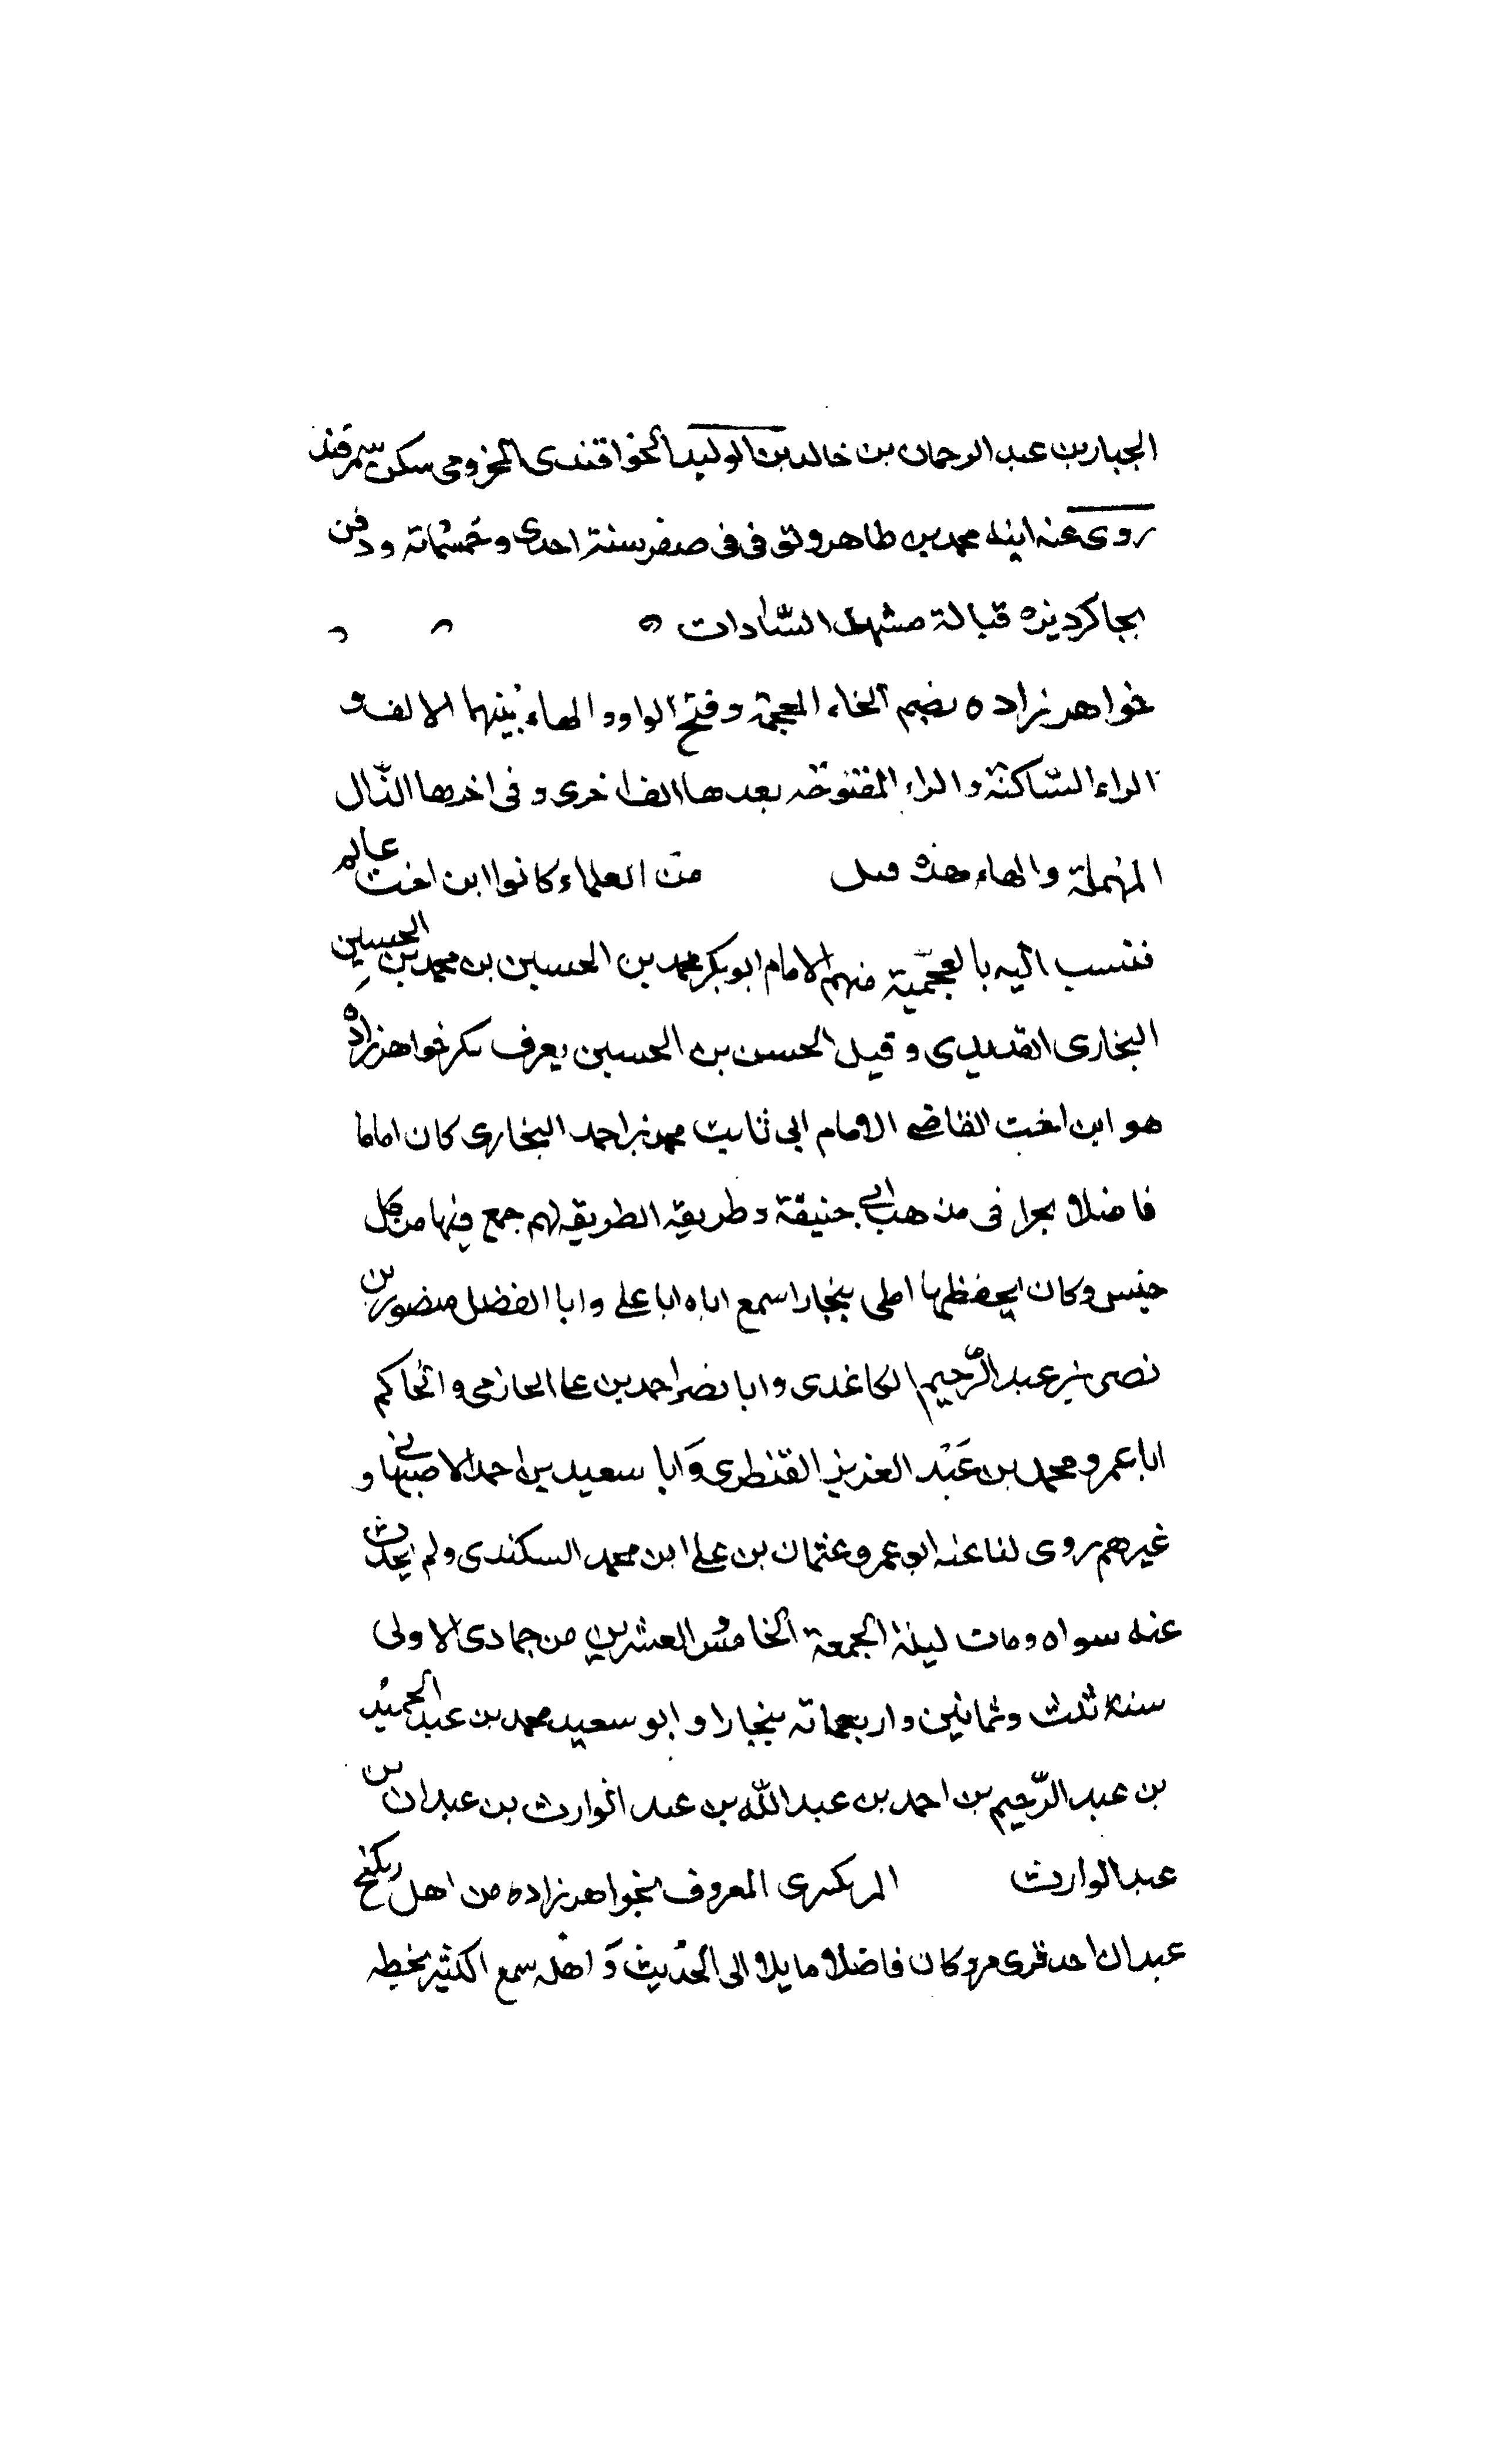 الجبار بن عبد الرحمان بن خالد بن الوليد الخواقندى المخزومى سكن سمرقند
روى عنه ابنه محمد بن طاهر وتوفى فى صفر سنة احدى وخمسمائة ودفن
بجاكرديزه قبالة مشهد السّادات ه
خواهرزاده بضم الخاء المعجمة وفتح الواو والهاء بينهما الالف و
الراء السّاكنة والزاء المفتوحة بعدها الف اخرى وفى اخرها الدّال
المهملة والهاء هذه من العلماء كانوا ابن اخت عالم
فنسب اليه بالعجمية منهم الامام ابو بكر محمد بن الحسين بن محمد بن الحسين
البخارى القديدى وقيل الحسن بن الحسين يعرف بكر خواهرزاده
هو ابن اخت القاضى الامام ابى ثابت محمد بن احمد البخارى كان اماما
فاضلا بحرا فى مذهب ابى حنيفة وطريقه الطريقه لهم جمع فيها من كل
جنس وكان يحفظها املى ببخارا سمع اباه ابا على وابا الفضل منصور بن
نصر بن عبد الرّحيم الكاغدى وابا نصر احمد بن على الحازمى والحاكم
ابا عمرو محمد بن عَبْد العزيز القنطرى وَابا سعيد بن احمد الاصبهانى و
غيرهم روى لنا عنه ابو عمرو عثمان بن على ابن محمد السكندى ولم يحدث
عنه سواه ومات ليلة الجمعة الخامس والعشرين من جمادى الاولى
سنة ثلث وثمانين واربعمائة ببخارا وابو سعيد محمد بن عبد الحميد
بن عبد الرّحيم بن احمد بن عبد اللّه بن عبد الوارث بن عبدان بن
عبد الوارث المعروف بخواهرزاده من اهل
عبدان احد قرى مرو كان فاضلا مايلا الى الحديث وَاهله سمع الكثير بخطه